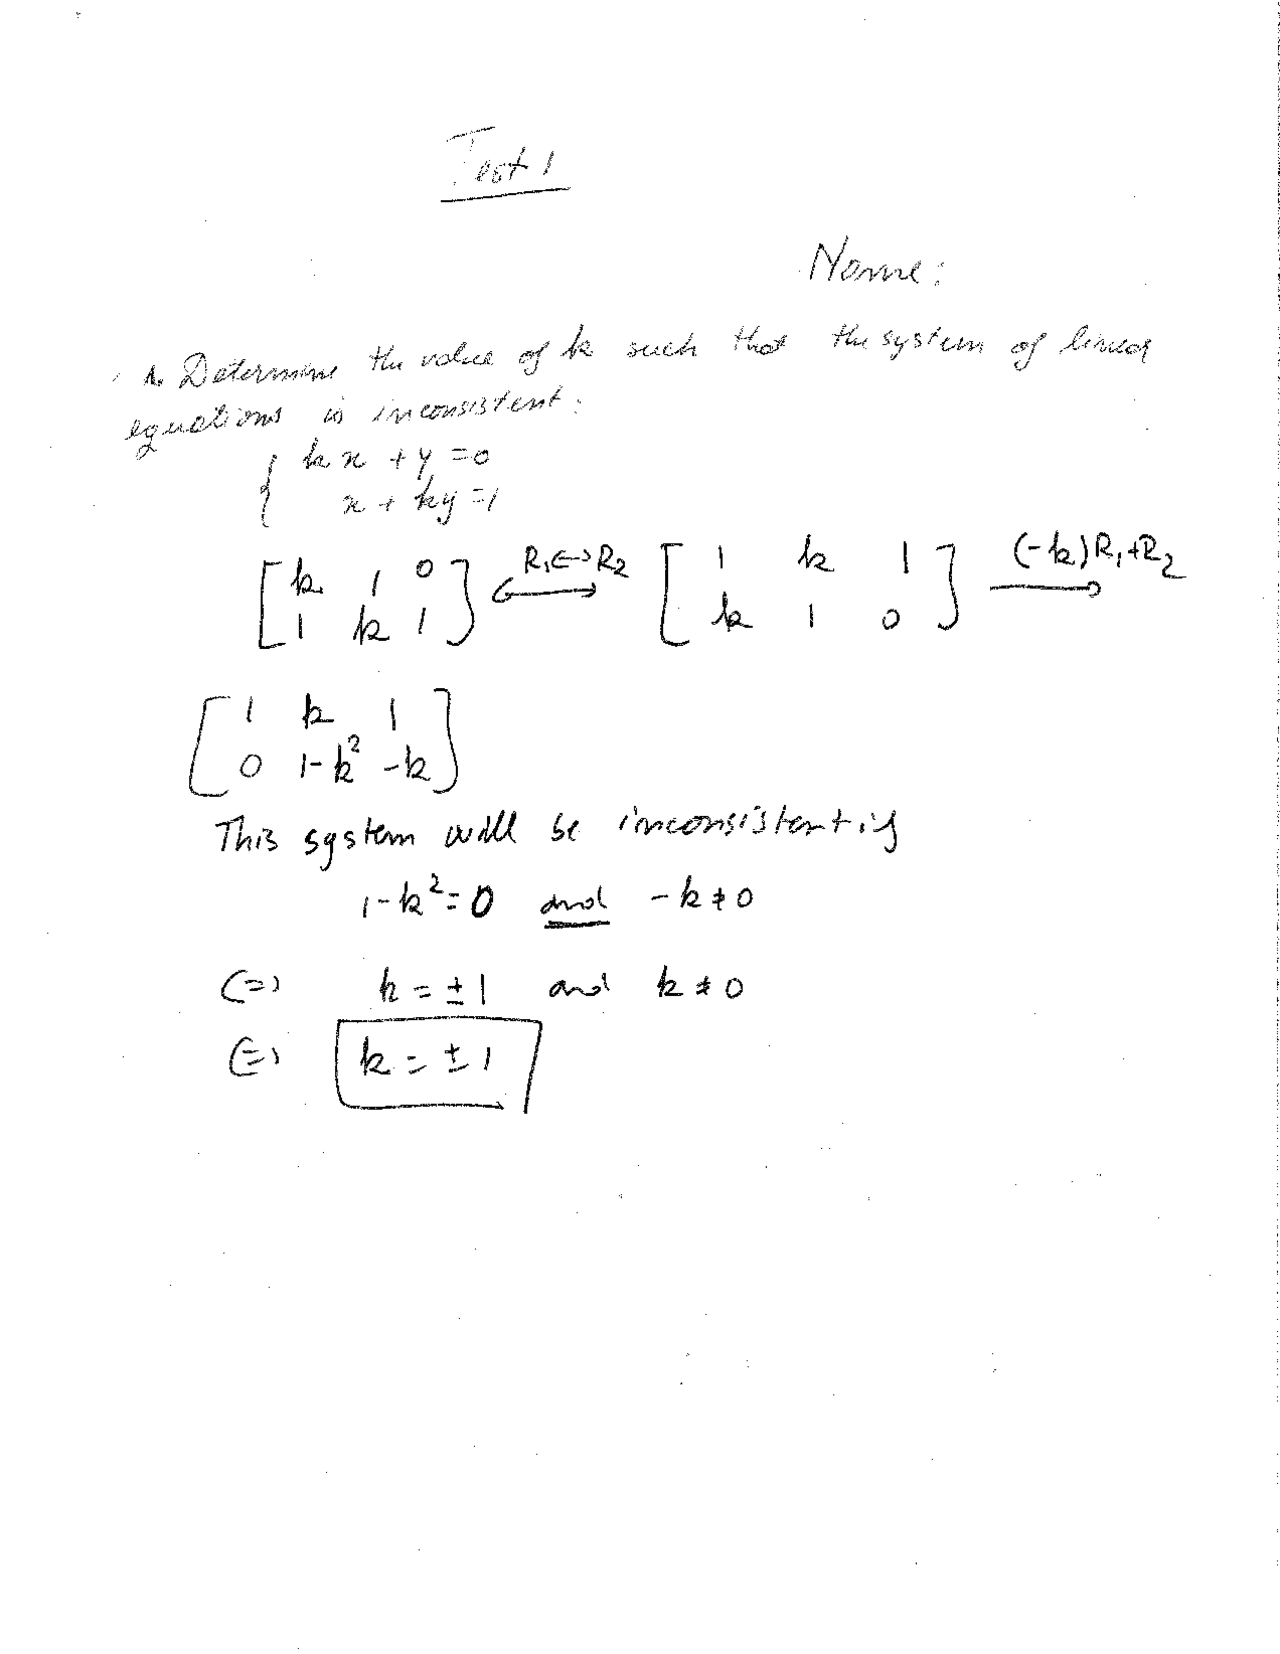 Test 1
Name:
1. Determine the value of k such that the system of linear
equations is inconsistent:
{ kx + y = 0
x + ky = 1
[ k 1 0 R₁↔R₂ [ 1 k 1 ] (-k)R₁+R₂
1 k 1 ] ⟷ k 1 0 ⟶
[ 1 k 1 ]
0 1-k² -k
This system will be inconsistent if
1-k² = 0 and -k ≠ 0
(=) k = ±1 and k ≠ 0
(=) k = ±1